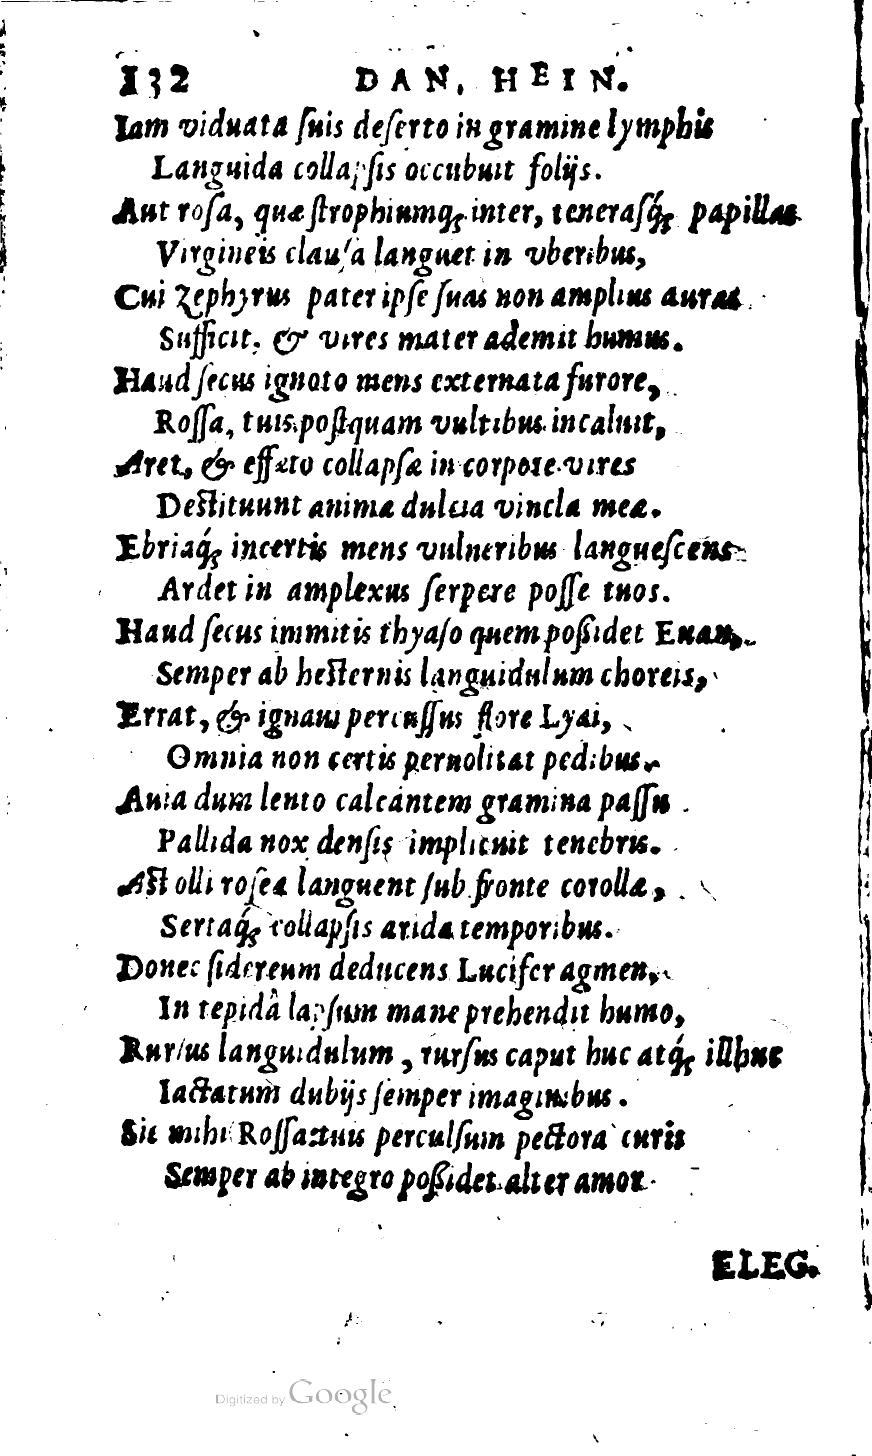 132 DAN. HEIN.
Iam viduata ſuis deſerto in gramine lymphis
Languida collapſis occubuit folijs.
Aut roſa, quæ ſtrophiumq́; inter, teneraſq́; papillas
Virgineis clauſa languet in vberibus,
Cui Zephyrus pater ipſe ſuas non amplius auras
Sufficit, & vires mater ademit humus.
Haud ſecus ignoto mens externata furore,
Roſſa, tuis poſtquam vultibus incaluit,
Aret, & effæto collapſæ in corpore vires
Deſtituunt animæ dulcia vincla meæ.
Ebriaq́; incertis mens vulneribus langueſcens
Ardet in amplexus ſerpere poſſe tuos.
Haud ſecus immitis thyaſo quem poßidet Euan,
Semper ab heſternis languidulum choreis,
Errat, & ignaui percuſſus flore Lyæi,
Omnia non certis peruolitat pedibus.
Auia dum lento calcantem gramina paſſu
Pallida nox denſis implicuit tenebris.
Aſt olli roſeæ languent ſub fronte corollæ,
Sertaq́; collapſis arida temporibus.
Donec ſidereum deducens Lucifer agmen,
In tepidâ lapſum mane prehendit humo,
Rurſus languidulum, rurſus caput huc atq́; illhuc
Iactatum dubijs ſemper imaginibus.
Sic mihi Roſſa tuis perculſum pectora curis
Semper ab integro poßidet alter amor.
ELEG.
Digitized by Google